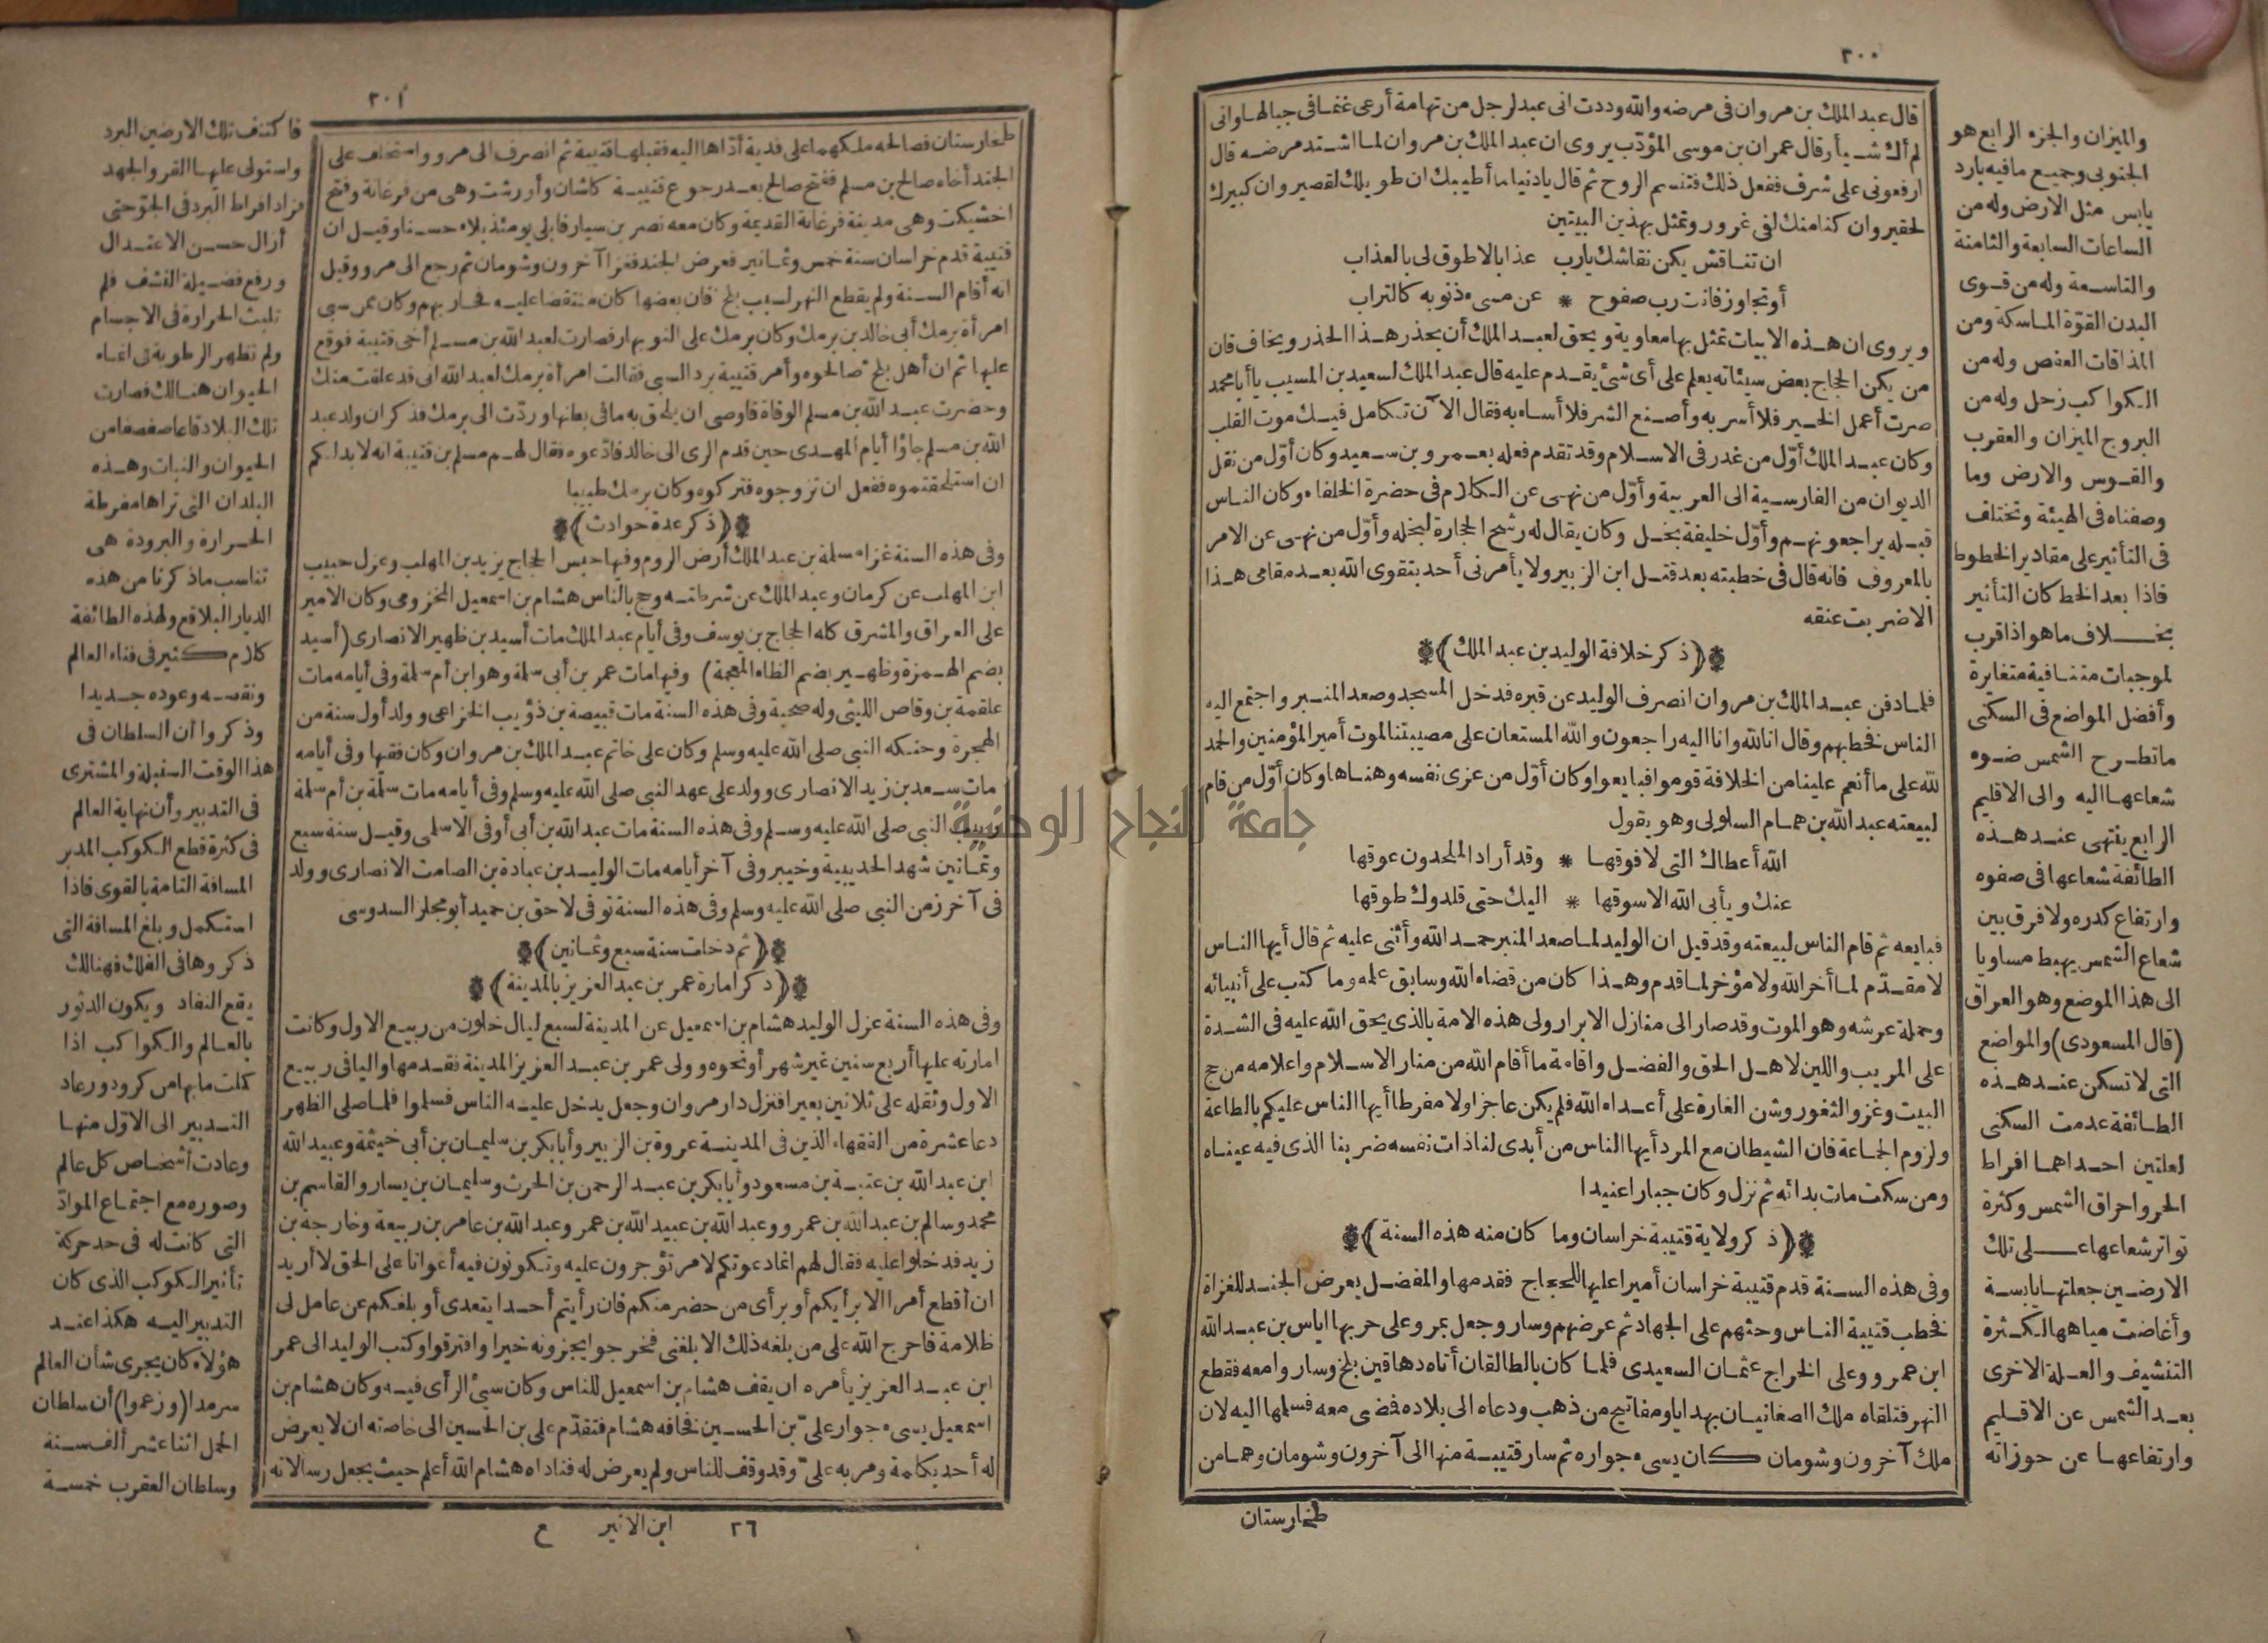 ٢٠٠
قال عبد الملك بن مروان فى مرضه والله وددت انى عبد لرجل من تهامة أرعى غنما فى جبالها وانى
لم أك شيأ وقال عمران بن موسى المؤدّب يروى ان عبد الملك بن مروان لما اشتد مرضه قال
ارفعونى على شرف ففعل ذلك فتنسم الروح ثم قال يا دنيا ما أطيبك ان طويلك لقصير وان كبيرك
لحقير وان كنا منك لفى غرور وتمثل بهذين البيتين
ان تناقش يكن نقاشك يارب عذابا لا طوق لى بالعذاب
أو تجاوز فانت رب صفوح * عن مسىء ذنوبه كالتراب
ويروى ان هذه الابيات تمثل بها معاوية ويحق لعبد الملك أن يحذر هذا الحذر ويخاف فان
من يكن الحجاج بعض سيئاته يعلم على أى شئ يقدم عليه قال عبد الملك لسعيد بن المسيب يا أبا محمد
صرت أعمل الخير فلا أسر به وأصنع الشر فلا أساء به فقال الآن تكامل فيك موت القلب
وكان عبد الملك أوّل من غدر فى الاسلام وقد تقدم فعله بعمرو بن سعيد وكان أوّل من نقل
الديوان من الفارسية الى العربية وأوّل من نهى عن الكلام فى حضرة الخلفاء وكان الناس
قبله يراجعونهم وأوّل خليفة بخل وكان يقال له رشح الحجارة لبخله وأوّل من نهى عن الامر
بالمعروف فانه قال فى خطبته بعد قتل ابن الزبير ولا يأمرنى أحد بتقوى الله بعد مقامى هذا
الا ضربت عنقه
﴿ذكر خلافة الوليد بن عبد الملك﴾
فلما دفن عبد الملك بن مروان انصرف الوليد عن قبره فدخل المسجد وصعد المنبر واجتمع اليه
الناس فخطبهم وقال انا لله وانا اليه راجعون والله المستعان على مصيبتنا لموت أمير المؤمنين والحمد
لله على ما أنعم علينا من الخلافة قوموا فبايعوا وكان أوّل من عزى نفسه وهناها وكان أوّل من قام
لبيعته عبد الله بن همام السلولى وهو يقول
الله أعطاك التى لا فوقها * وقد أراد الملحدون عوقها
عنك ويأبى الله الا سوقها * اليك حتى قلدوك طوقها
فبايعه ثم قام الناس لبيعته وقد قيل ان الوليد لما صعد المنبر حمد الله وأثنى عليه ثم قال أيها الناس
لا مقدّم لما أخر الله ولا مؤخر لما قدم وهذا كان من قضاء الله وسابق علمه وما كتب على أنبيائه
وحملة عرشه وهو الموت وقد صار الى منازل الابرار ولى هذه الامة بالذى يحق الله عليه فى الشدة
على المريب واللين لاهل الحق والفضل واقامة ما أقام الله من منار الاسلام واعلامه من حج
البيت وغزو الثغور وشن الغارة على أعداء الله فلم يكن عاجزا ولا مفرطا أيها الناس عليكم بالطاعة
ولزوم الجماعة فان الشيطان مع المرد أيها الناس من أبدى لنا ذات نفسه ضربنا الذى فيه عيناه
ومن سكت مات بدائه ثم نزل وكان جبارا عنيدا
﴿ذكر ولاية قتيبة خراسان وما كان منه هذه السنة﴾
وفى هذه السنة قدم قتيبة خراسان أميرا عليها للحجاج فقدمها والمفضل يعرض الجند للغزاة
فخطب قتيبة الناس وحثهم على الجهاد ثم عرضهم وسار وجعل بمرو على حربها اياس بن عبد الله
ابن عمرو وعلى الخراج عثمان السعيدى فلما كان بالطالقان أتاه دهاقين بلخ وساروا معه فقطع
النهر فتلقاه ملك الصغانيان بهدايا ومفاتيح من ذهب ودعاه الى بلاده فضى معه فسلمها اليه لان
ملك آخرون وشومان كان يسىء جواره ثم سار قتيبة منها الى آخرون وشومان وهما من
طخارستان
والميزان والجزء الرابع هو
الجنوبى وجميع ما فيه بارد
يابس مثل الارض وله من
الساعات السابعة والثامنة
والتاسعة وله من قوى
البدن القوّة الماسكة ومن
المذاقات العفص وله من
الكواكب زحل وله من
البروج الميزان والعقرب
والقوس والارض وما
وصفناه فى الهيئة وتختلف
فى التأثير على مقادير الخطوط
فاذا بعد الخط كان التأثير
بخلاف ما هو اذا قرب
لموجبات متنافية متغايرة
وأفضل المواضع فى السكنى
ما تطرح الشمس ضوء
شعاعها اليه والى الاقليم
الرابع ينتهى عند هذه
الطائفة شعاعها فى صفوه
وارتفاع كدره ولا فرق بين
شعاع الشمس يهبط مساويا
الى هذا الموضع وهو العراق
(قال المسعودى) والمواضع
التى لا تسكن عند هذه
الطائفة عدمت السكنى
لعلتين احداهما افراط
الحر واحراق الشمس وكثرة
تواتر شعاعها على تلك
الارضين جعلتها يابسة
وأغاضت مياهها لكثرة
التنشيف والعلة الاخرى
بعد الشمس عن الاقليم
وارتفاعها عن حوزاته
٢٠١
طخارستان فصالحه ملكهما على فدية أدّاها اليه فقبلها قتيبة ثم انصرف الى مرو واستخلف على
الجند أخاه صالح بن مسلم ففتح صالح بعد رجوع قتيبة كاشان وأورشت وهى من فرغانة وفتح
اخشيكت وهى مدينة فرغانة القديمة وكان معه نصر بن سيار فابلى يومئذ بلاء حسنا وقيل ان
قتيبة قدم خراسان سنة خمس وثمانين فعرض الجند فغزا آخرون وشومان ثم رجع الى مرو وقيل
انه أقام السنة ولم يقطع النهر لسبب بلخ فان بعضها كان منتقضا عليه فحاربهم وكان ممن سبى
امرأة برمك أبى خالد بن برمك وكان برمك على النوبهار فصارت لعبد الله بن مسلم أخى قتيبة فوقع
عليها ثم ان أهل بلخ صالحوه وأمر قتيبة برد السبى فقالت امرأة برمك لعبد الله انى قد علقت منك
وحضرت عبد الله بن مسلم الوفاة فاوصى ان يلحق به ما فى بطنها وردّت الى برمك فذكر ان ولد عبد
الله بن مسلم جاؤا أيام المهدى حين قدم الرى الى خالد فادّعوه فقال لهم مسلم بن قتيبة انه لا بد لكم
ان استلحقتموه ففعل ان تزوجوه فتركوه وكان برمك طبيبا
﴿ذكر عدة حوادث﴾
وفى هذه السنة غزا مسلمة بن عبد الملك أرض الروم وفيها حبس الحجاج يزيد بن المهلب وعزل حبيب
ابن المهلب عن كرمان وعبد الملك عن شرطته وحج بالناس هشام بن اسمعيل المخزومى وكان الامير
على العراق والمشرق كله الحجاج بن يوسف وفى أيام عبد الملك مات أسيد بن ظهير الانصارى (أسيد
بضم الهمزة وظهير بضم الظاء المعجمة) وفيها مات عمر بن أبى سلمة وهو ابن أم سلمة وفى أيامه مات
علقمة بن وقاص الليثى وله صحبة وفى هذه السنة مات قبيصة بن ذؤيب الخزاعى وولد أول سنة من
الهجرة وحنكه النبى صلى الله عليه وسلم وكان على خاتم عبد الملك بن مروان وكان فقيها وفى أيامه
مات سعد بن زيد الانصارى وولد على عهد النبى صلى الله عليه وسلم وفى أيامه مات سلمة بن أم سلمة
ربيب النبى صلى الله عليه وسلم وفى هذه السنة مات عبد الله بن أبى أوفى الاسلمى وقيل سنة سبع
وثمانين شهد الحديبية وخيبر وفى آخر أيامه مات الوليد بن عبادة بن الصامت الانصارى وولد
فى آخر زمن النبى صلى الله عليه وسلم وفى هذه السنة توفى لاحق بن حميد أبو مجلز السدوسى
﴿ثم دخلت سنة سبع وثمانين﴾
﴿ذكر امارة عمر بن عبد العزيز بالمدينة﴾
وفى هذه السنة عزل الوليد هشام بن اسمعيل عن المدينة لسبع ليال خلون من ربيع الاول وكانت
امارته عليها أربع سنين غير شهر أو نحوه وولى عمر بن عبد العزيز المدينة فقدمها واليا فى ربيع
الاول وثقله على ثلاثين بعيرا فنزل دار مروان وجعل يدخل عليه الناس فسلموا فلما صلى الظهر
دعا عشرة من الفقهاء الذين فى المدينة عروة بن الزبير وأبا بكر بن سليمان بن أبى خيثمة وعبيد الله
ابن عبد الله بن عتبة بن مسعود وأبا بكر بن عبد الرحمن بن الحرث وسليمان بن يسار والقاسم بن
محمد وسالم بن عبد الله بن عمرو وعبد الله بن عبيد الله بن عمر وعبد الله بن عامر بن ربيعة وخارجة بن
زيد فدخلوا عليه فقال لهم انما دعوتكم لامر تؤجرون عليه وتكونون فيه أعوانا على الحق لا أريد
ان أقطع أمرا الا برأيكم أو برأى من حضر منكم فان رأيتم أحدا يتعدى أو بلغكم عن عامل لى
ظلامة فاحرج الله على من بلغه ذلك الا بلغنى فخرجوا يجزونه خيرا وافترقوا وكتب الوليد الى عمر
ابن عبد العزيز يأمره ان يقف هشام بن اسمعيل للناس وكان سيئ الرأى فيه وكان هشام بن
اسمعيل يسىء جوار علىّ بن الحسين فخافه هشام فتقدّم على بن الحسين الى خاصته ان لا يعرض
له أحد بكلمة ومر به علىّ وقد وقف للناس ولم يعرض له فناداه هشام الله أعلم حيث يجعل رسالاته
٢٦ ابن الاثير ع
فاكتنف تلك الارضين البرد
واستولى عليها القر والجهد
فزاد افراط البرد فى الجوّ حتى
أزال حسن الاعتدال
ورفع فضيلة النشف فلم
تلبث الحرارة فى الاجسام
ولم تظهر الرطوبة فى انماء
الحيوان هنالك فصارت
تلك البلاد قاعا صفصفا من
الحيوان والنبات وهذه
البلدان التى تراها مفرطة
الحرارة والبرودة هى
تناسب ما ذكرنا من هذه
الديار البلاقع ولهذه الطائفة
كلام كثير فى فناء العالم
ونقسه وعوده جديدا
وذكروا أن السلطان فى
هذا الوقت السنبلة والمشترى
فى التدبير وأن نهاية العالم
فى كثرة قطع الكوكب المدبر
المسافة التامة بالقوى فاذا
استكمل وبلغ المسافة التى
ذكروها فى الفلك فهنالك
يقع النفاد ويكون الدثور
بالعالم والكواكب اذا
كملت ما بها من كرودور عاد
التدبير الى الاوّل منها
وعادت أشخاص كل عالم
وصوره مع اجتماع الموادّ
التى كانت له فى حد حركة
تأثير الكوكب الذى كان
التدبير اليه هكذا عند
هؤلاء كان يجرى شأن العالم
سرمدا (وزعموا) أن سلطان
الحمل اثنا عشر ألف سنة
وسلطان العقرب خمسة
جامعة النجاح الوطنية